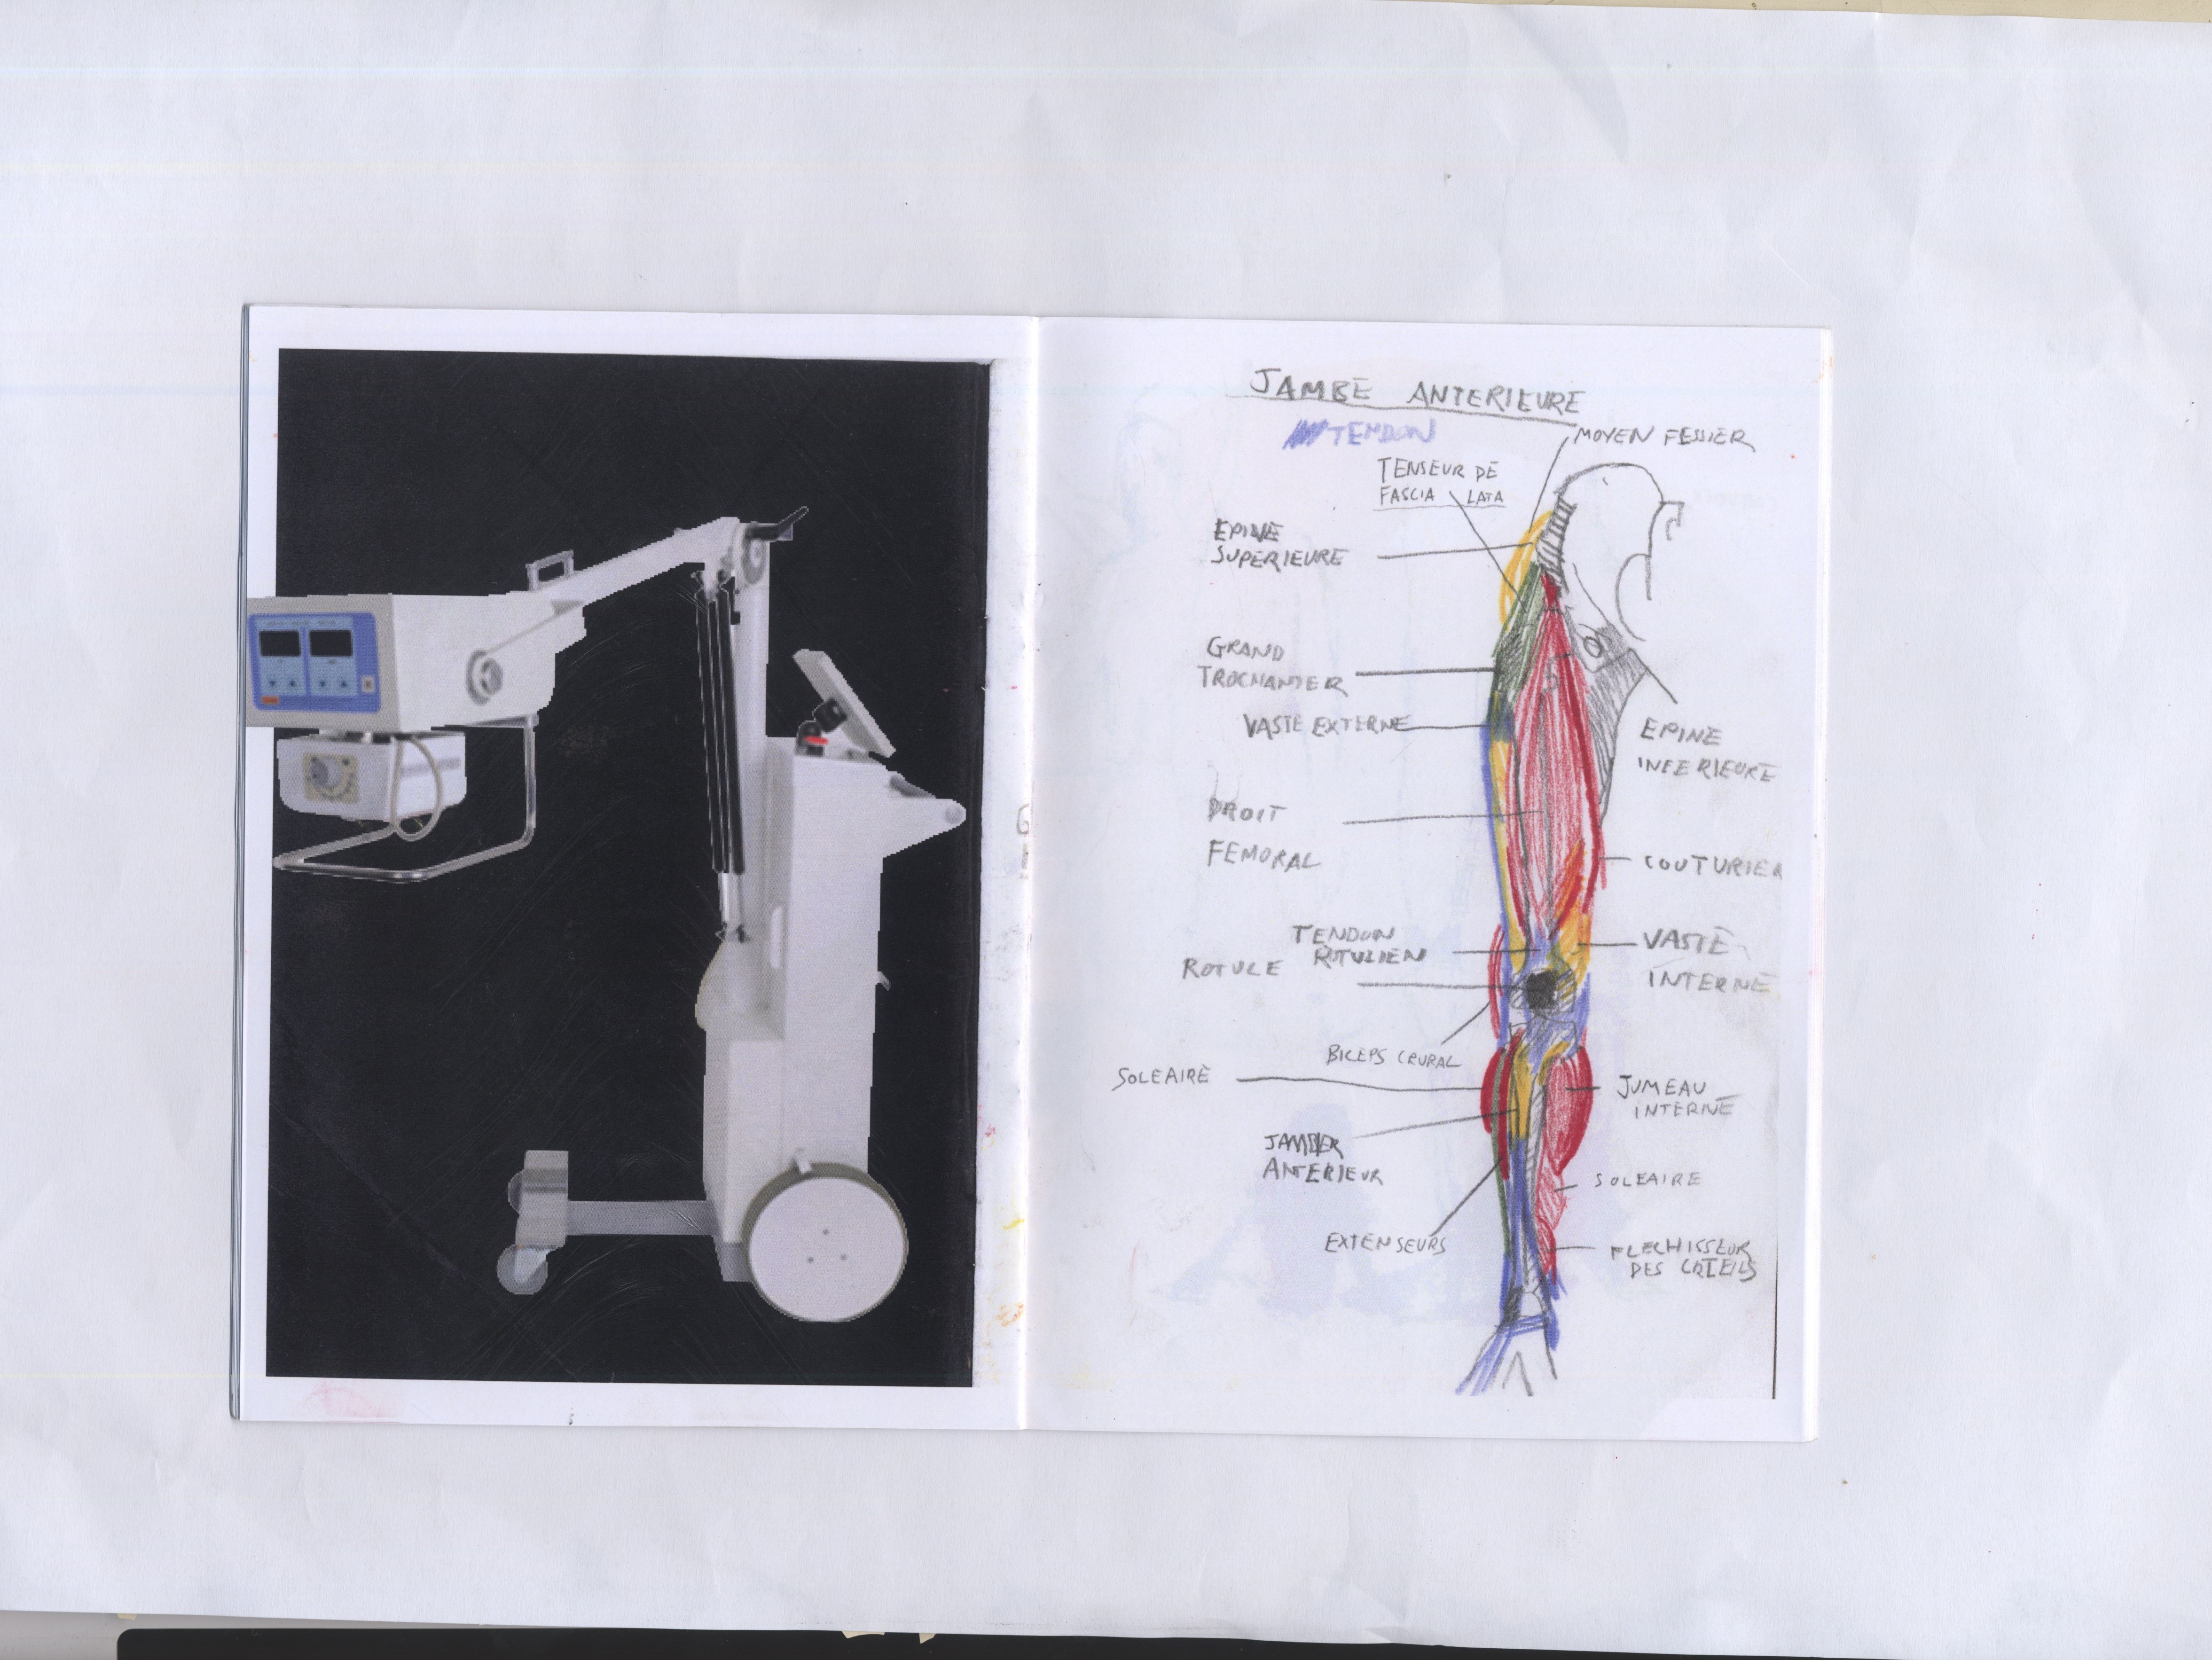 JAMBE ANTERIEURE
TENDON
MOYEN FESSIER
TENSEUR DE
FASCIA LATA
EPINE
SUPERIEURE
GRAND
TROCHANTER
VASTE EXTERNE
EPINE
INFERIEURE
DROIT
FEMORAL
COUTURIER
TENDON
ROTULIEN
ROTULE
VASTE
INTERNE
BICEPS CRURAL
SOLEAIRE
JUMEAU
INTERNE
JAMBIER
ANTERIEUR
SOLEAIRE
EXTENSEURS
FLECHISSEUR
DES ORTEILS